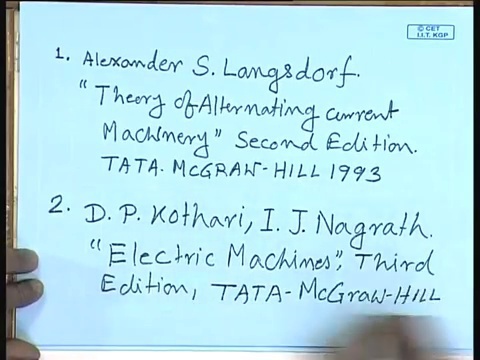 © CET
I.I.T. KGP
1. Alexander S. Langsdorf.
"Theory of Alternating current
Machinery" Second Edition.
TATA. McGRAW-HILL 1993
2. D. P. Kothari, I. J. Nagrath.
"Electric Machines", Third
Edition, TATA-McGraw-HILL